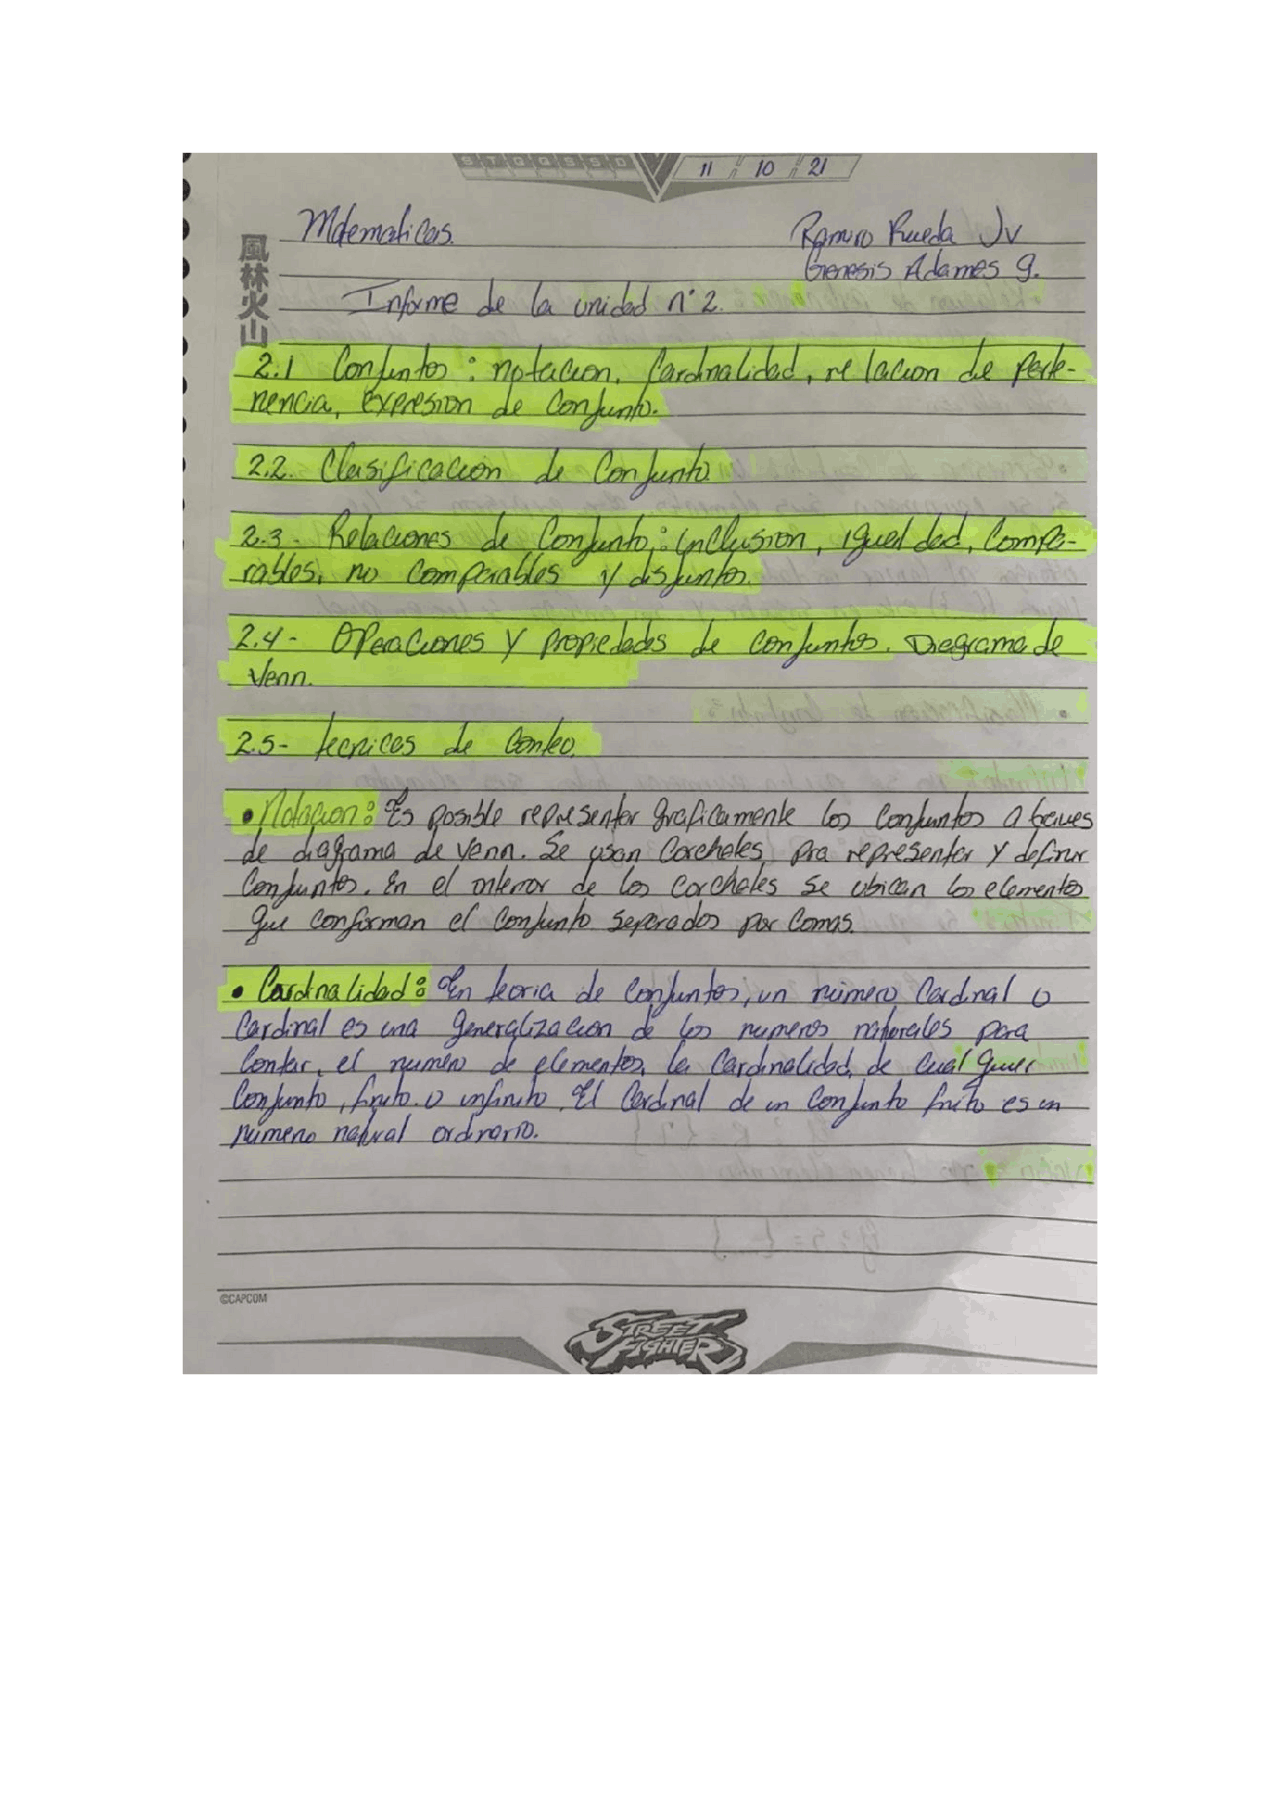 S T Q Q S S D
11 / 10 / 21
Matematicas.
Ramiro Rueda Jv
Genesis Adames g.
風林火山
Informe de la unidad n°2.
2.1 Conjuntos : notacion, Cardinalidad, relacion de perte-
nencia, expresion de Conjunto.
2.2. Clasificacion de Conjunto.
2.3- Relaciones de Conjunto: inclusion, igualdad, Compa-
rables, no comparables y disjuntos.
2.4- Operaciones y propiedades de conjuntos. Diagrama de
Venn.
2.5- tecnicas de Conteo.
• Notacion: Es posible representar graficamente los conjuntos a traves
de diagrama de venn. Se usan Corchetes pra representar y definir
Conjuntos. En el interior de los corchetes se ubican los elementos
que conforman el conjunto separados por Comas.
• Cardinalidad: En teoria de conjuntos, un número Cardinal o
Cardinal es una generalizacion de los numeros naturales para
Contar, el numero de elementos, la Cardinalidad, de cualquier
Conjunto, finito o infinito. El Cardinal de un Conjunto finito es un
número natural ordinario.
©CAPCOM
STREET
FIGHTER